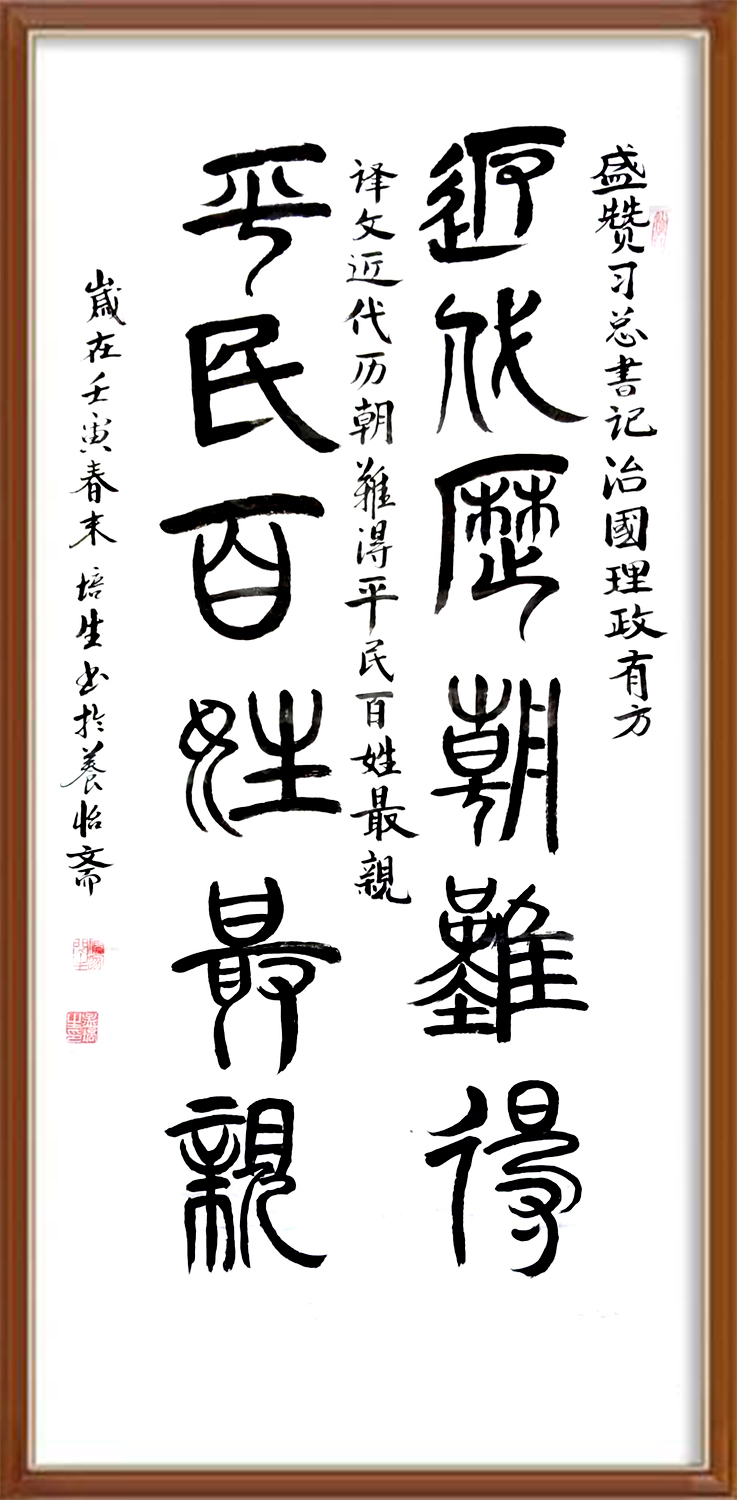 盛赞习总書记治國理政有方
近代歷朝難得
译文近代历朝難得平民百姓最親
平民百姓最親
歲在壬寅春末培生书於養怡斋